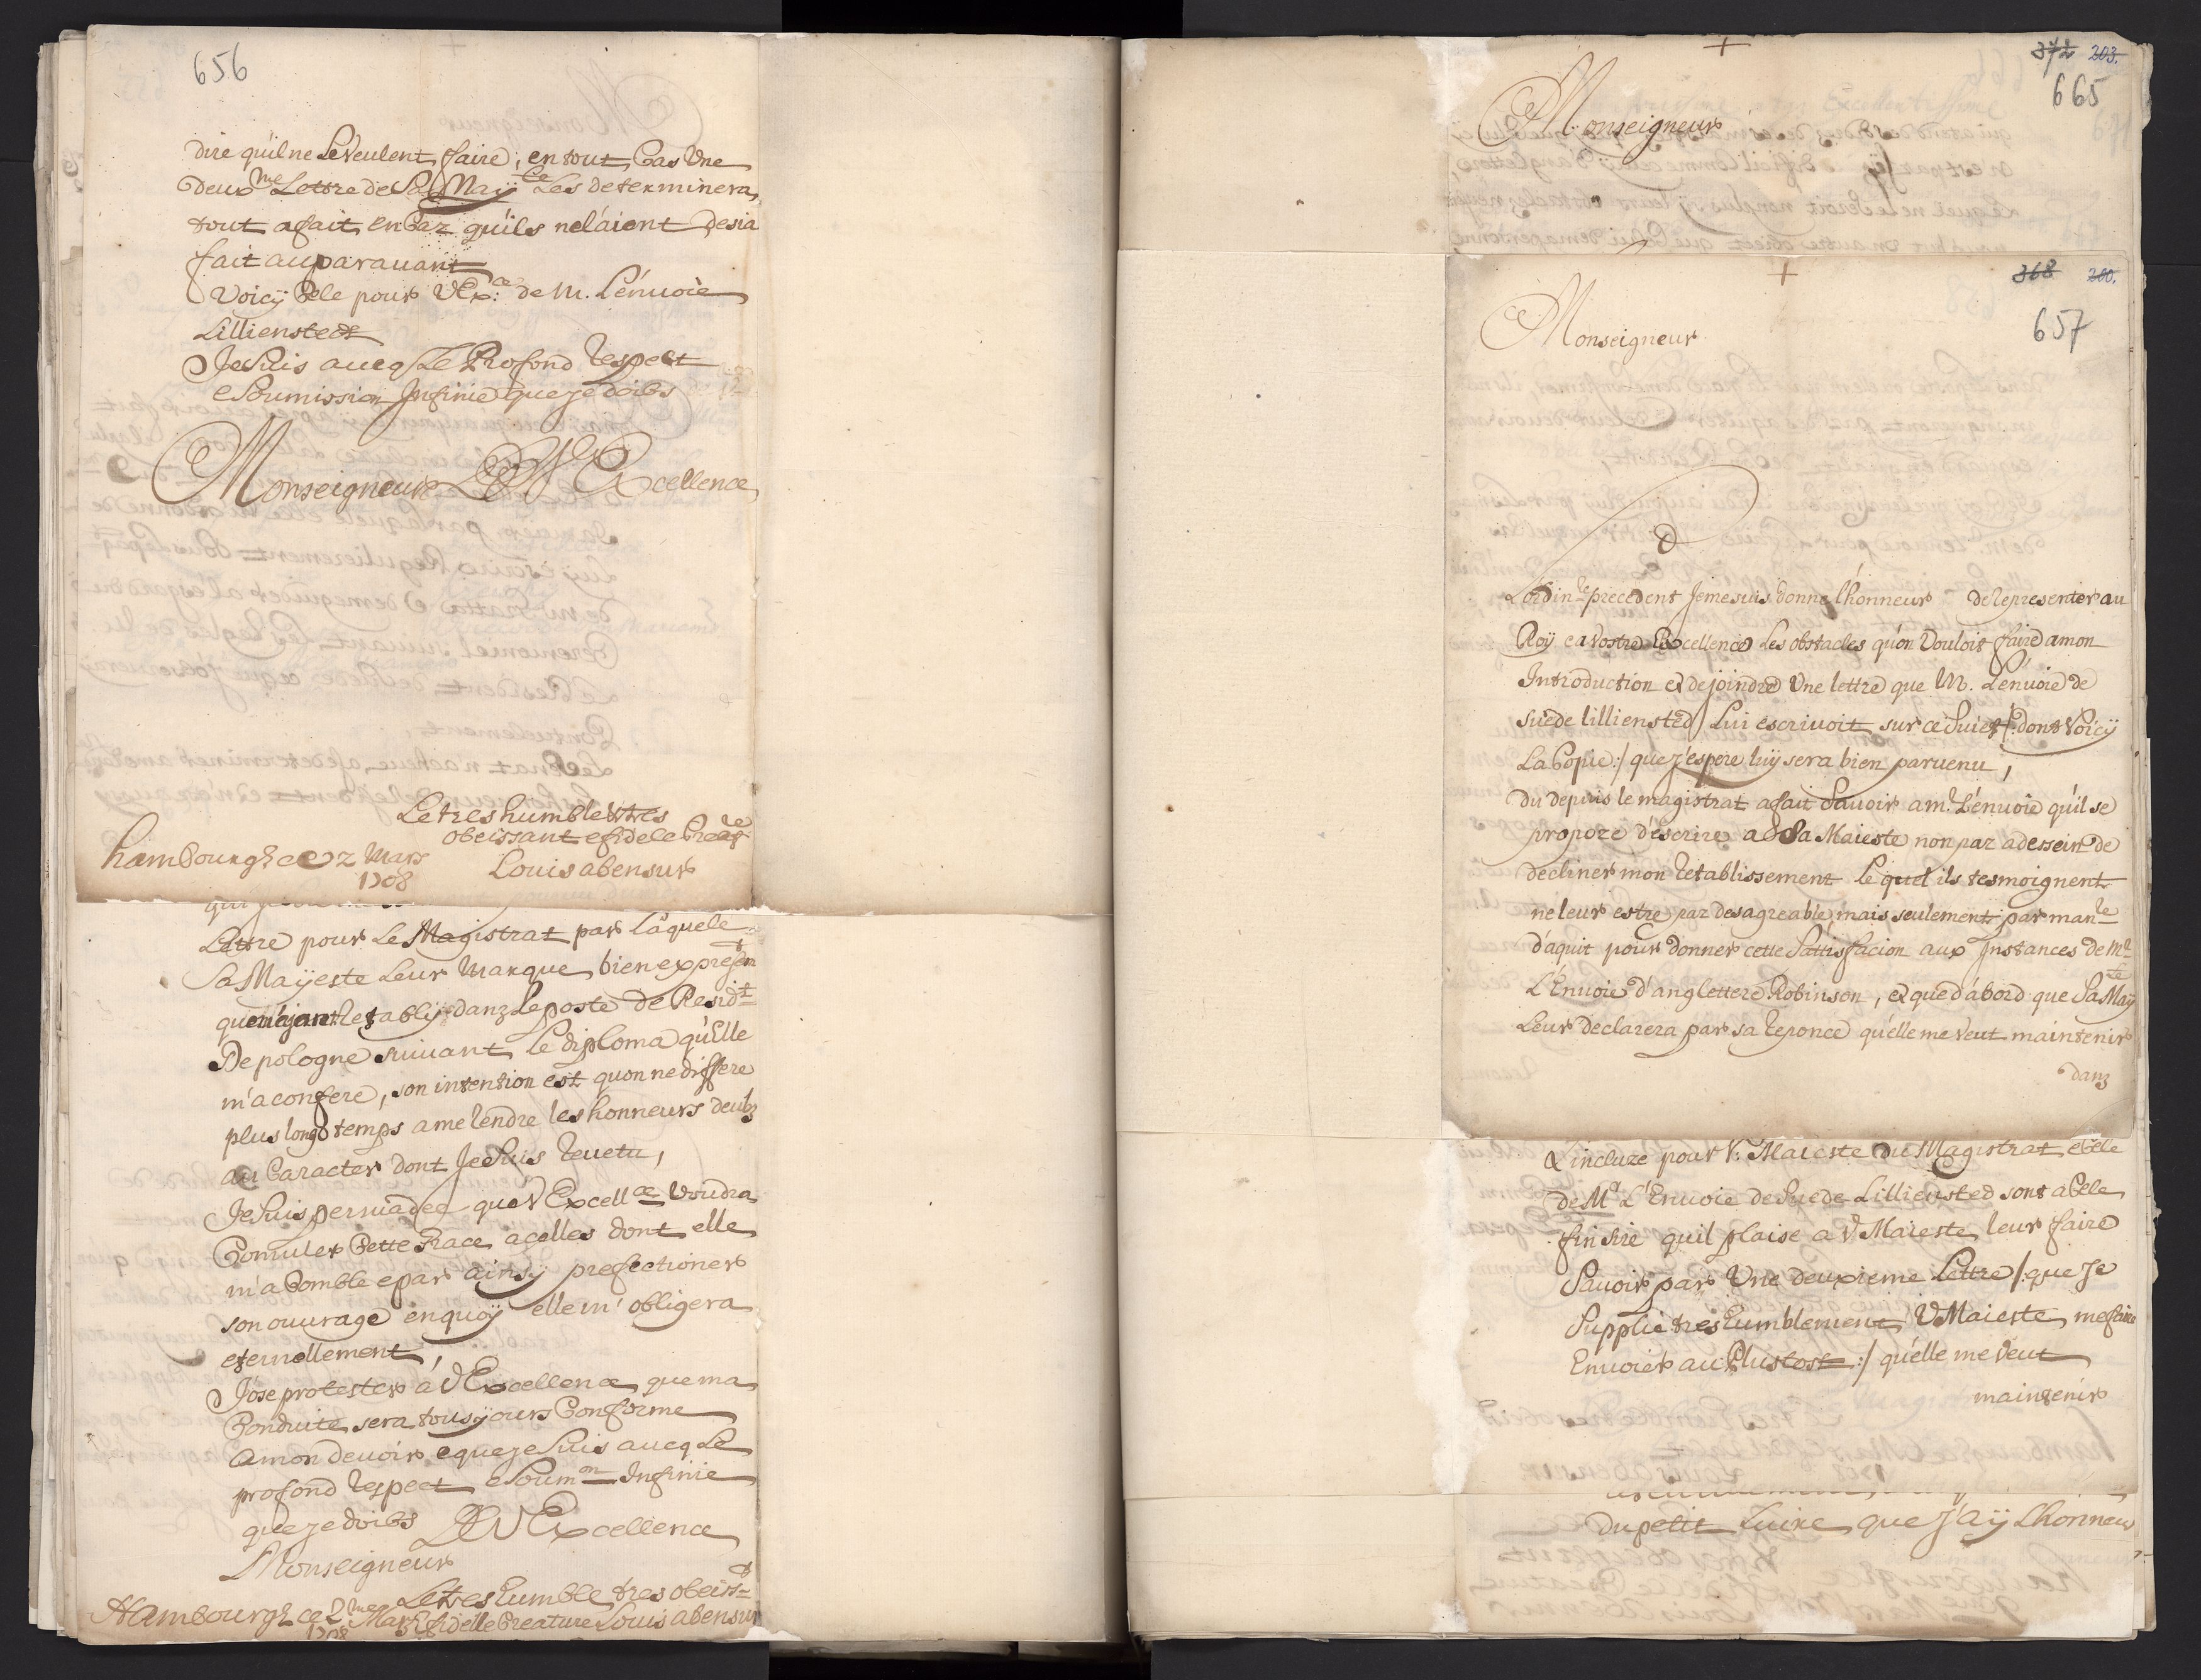 656
dire qu'il ne le veulent faire, en tout Cas Une
deux.me Lettre de Sa May.te Les determinera
tout a fait en Caz qu'ils nel'aiont desia
fait auparauant
Voicÿ Cele pour VEx.ce de M. L'enuoie
Lillienstedt
Je Suis aueq Le Profond respect
e Soumission Infinie que je doibs
Monseigneur DV Excellence
Le tres humble tres
obeissant e fidele Creat.re
hambourgh ce 2 Mars
1708
Louis abensur
Lettre pour Le Magistrat par Laquele
Sa Maÿeste Leur Marque bien expresem.t
que m'ajant retablÿ danz Le poste de Resid.t
De pologne suiuant Le diploma qu'Elle
m'a confere, son intention est quon ne differe
plus long temps a me rendre les honneurs deubz
au Caracter dont Je Suis reuetu,
Je Suis persuadee que V Excell.ce voudra
Comuler Cette Grace a celles dont elle
m'a Comble e par ainsÿ prefectioner
son ouurage en quoÿ elle m'obligera
eternellement,
J'ose protester a V Excellence que ma
Conduite sera tousÿours Conforme
a mon deuoir e que je Suis aueq Le
profond respect e Soum.on Infinie
que je doibs DV Excellence
Monseigneur
Le tres humble tres obeiss.t
Hambourgh ce 2.me Mars e fidelle Creature Louis abensur
1708
372 203.
665
Monseigneur
368 200.
657
Monseigneur
L'ordin.re precedent Je me suis donne l'honneur de representer au
Roÿ e a Vostre Excellence Les obstacles qu'on Vouloit faire a mon
Introduction et de joindre Une lettre que M. L'enuoie de
suede lilliensted Lui escriuoit sur ce Suiet /: dont Voicÿ
La Copie :/ que j'espere luÿ sera bien paruenu,
Du depuis le magistrat a fait Sauoir a m.r L'enuoie qu'il se
propoze d'escrire a Sa Maieste non paz a dessein de
decliner mon retablissement Le quel ils tesmoignent
ne leur estre paz desagreable, mais seulement par man.re
d'aquit pour donner cette Sattisfacion aux Instances de M.r
L'Enuoie d'anglettere Robinson, et que d'abord que Sa May.te
Leur declarera par sa reponce qu'elle me veut maintenir
danz
L'incluze pour V. Maieste du Magistrat e Cele
de M.r L'Enuoie de Suede Lilliensted sont a Cele
fin sire quil plaise a V Maieste leur faire
Sauoir par Une deuxieme Lettre /: que Je
Supplie tres humblement V Maieste me faire
Enuoier au Plustost :/ qu'elle me veut
maintenir
du petit Luire que J'aÿ L'honneur